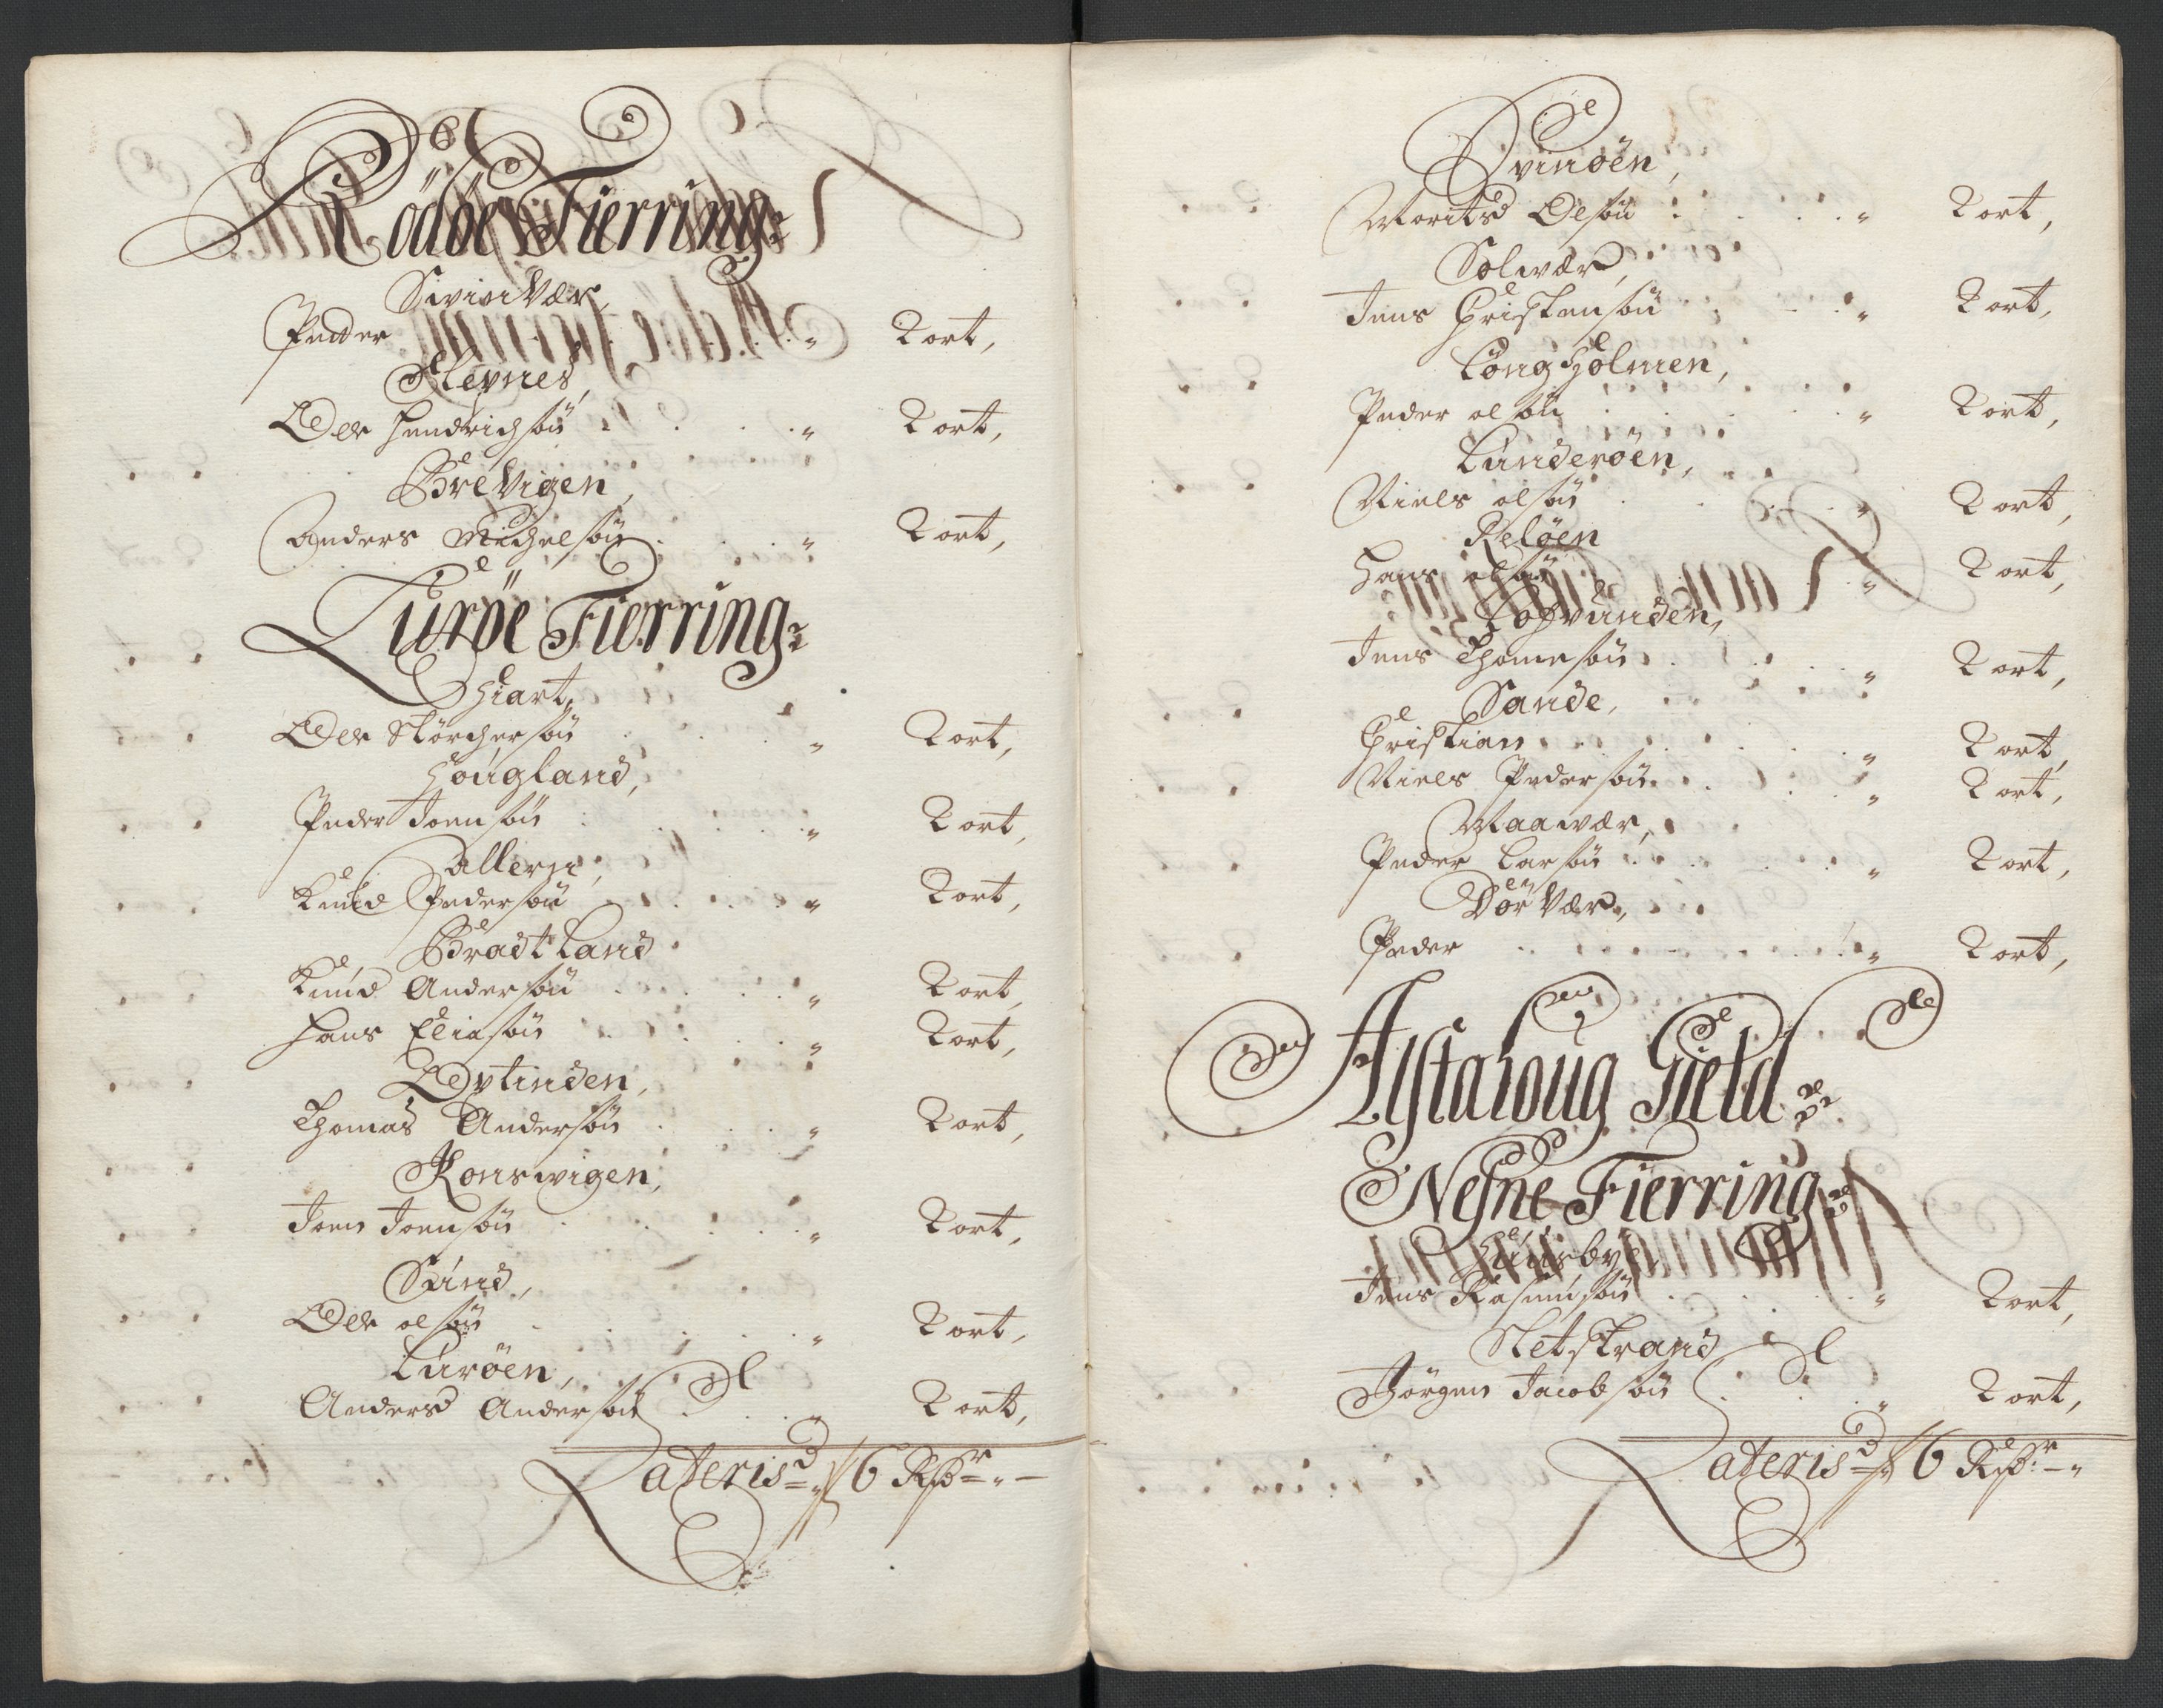 Rödöe Fierring
SwiniVær,
Peder „ 2 ort,
Slevnes,
Ole Hendrichsøn „ 2 ort,
BreVigen,
Anders Michelsøn „ 2 ort,
Luröe Fierring
Hiart,
Ole Størchersøn „ 2 ort,
Hougland,
Peder Joensøn „ 2 ort,
Allern,
Knud Pedersøn „ 2 ort,
Bradtland
Knud Andersøn „ 2 ort,
Hans Eliasøn „ 2 ort,
Øvtinden,
Thomas Andersøn „ 2 ort,
Konswigen,
Joen Joensøn „ 2 ort,
Sund,
Ole olsøn „ 2 ort,
Luröen,
Anders Andersøn „ 2 ort,
Lateris 6 Rdr „ –
Svinöen,
Morits Olsøn „ 2 ort,
Solwær,
Jens Christensøn „ 2 ort,
Longholmen,
Peder olsøn „ 2 ort,
Lunderöen,
Niels olsøn „ 2 ort,
Relöen
Hans olsøn „ 2 ort,
Lofvunden,
Jens Thomesøn „ 2 ort,
Sande,
Christian „ 2 ort,
Niels Pedersøn „ 2 ort,
Maawær,
Peder Larsøn „ 2 ort,
DörVær,
Peder „ 2 ort,
Alstahoug Gield
Nesne Fierring
Huusbye,
Jens Rasmusøn „ 2 ort,
Sletstrand
Jörgen Jacobsøn „ 2 ort,
Lateris 6 Rdr – „